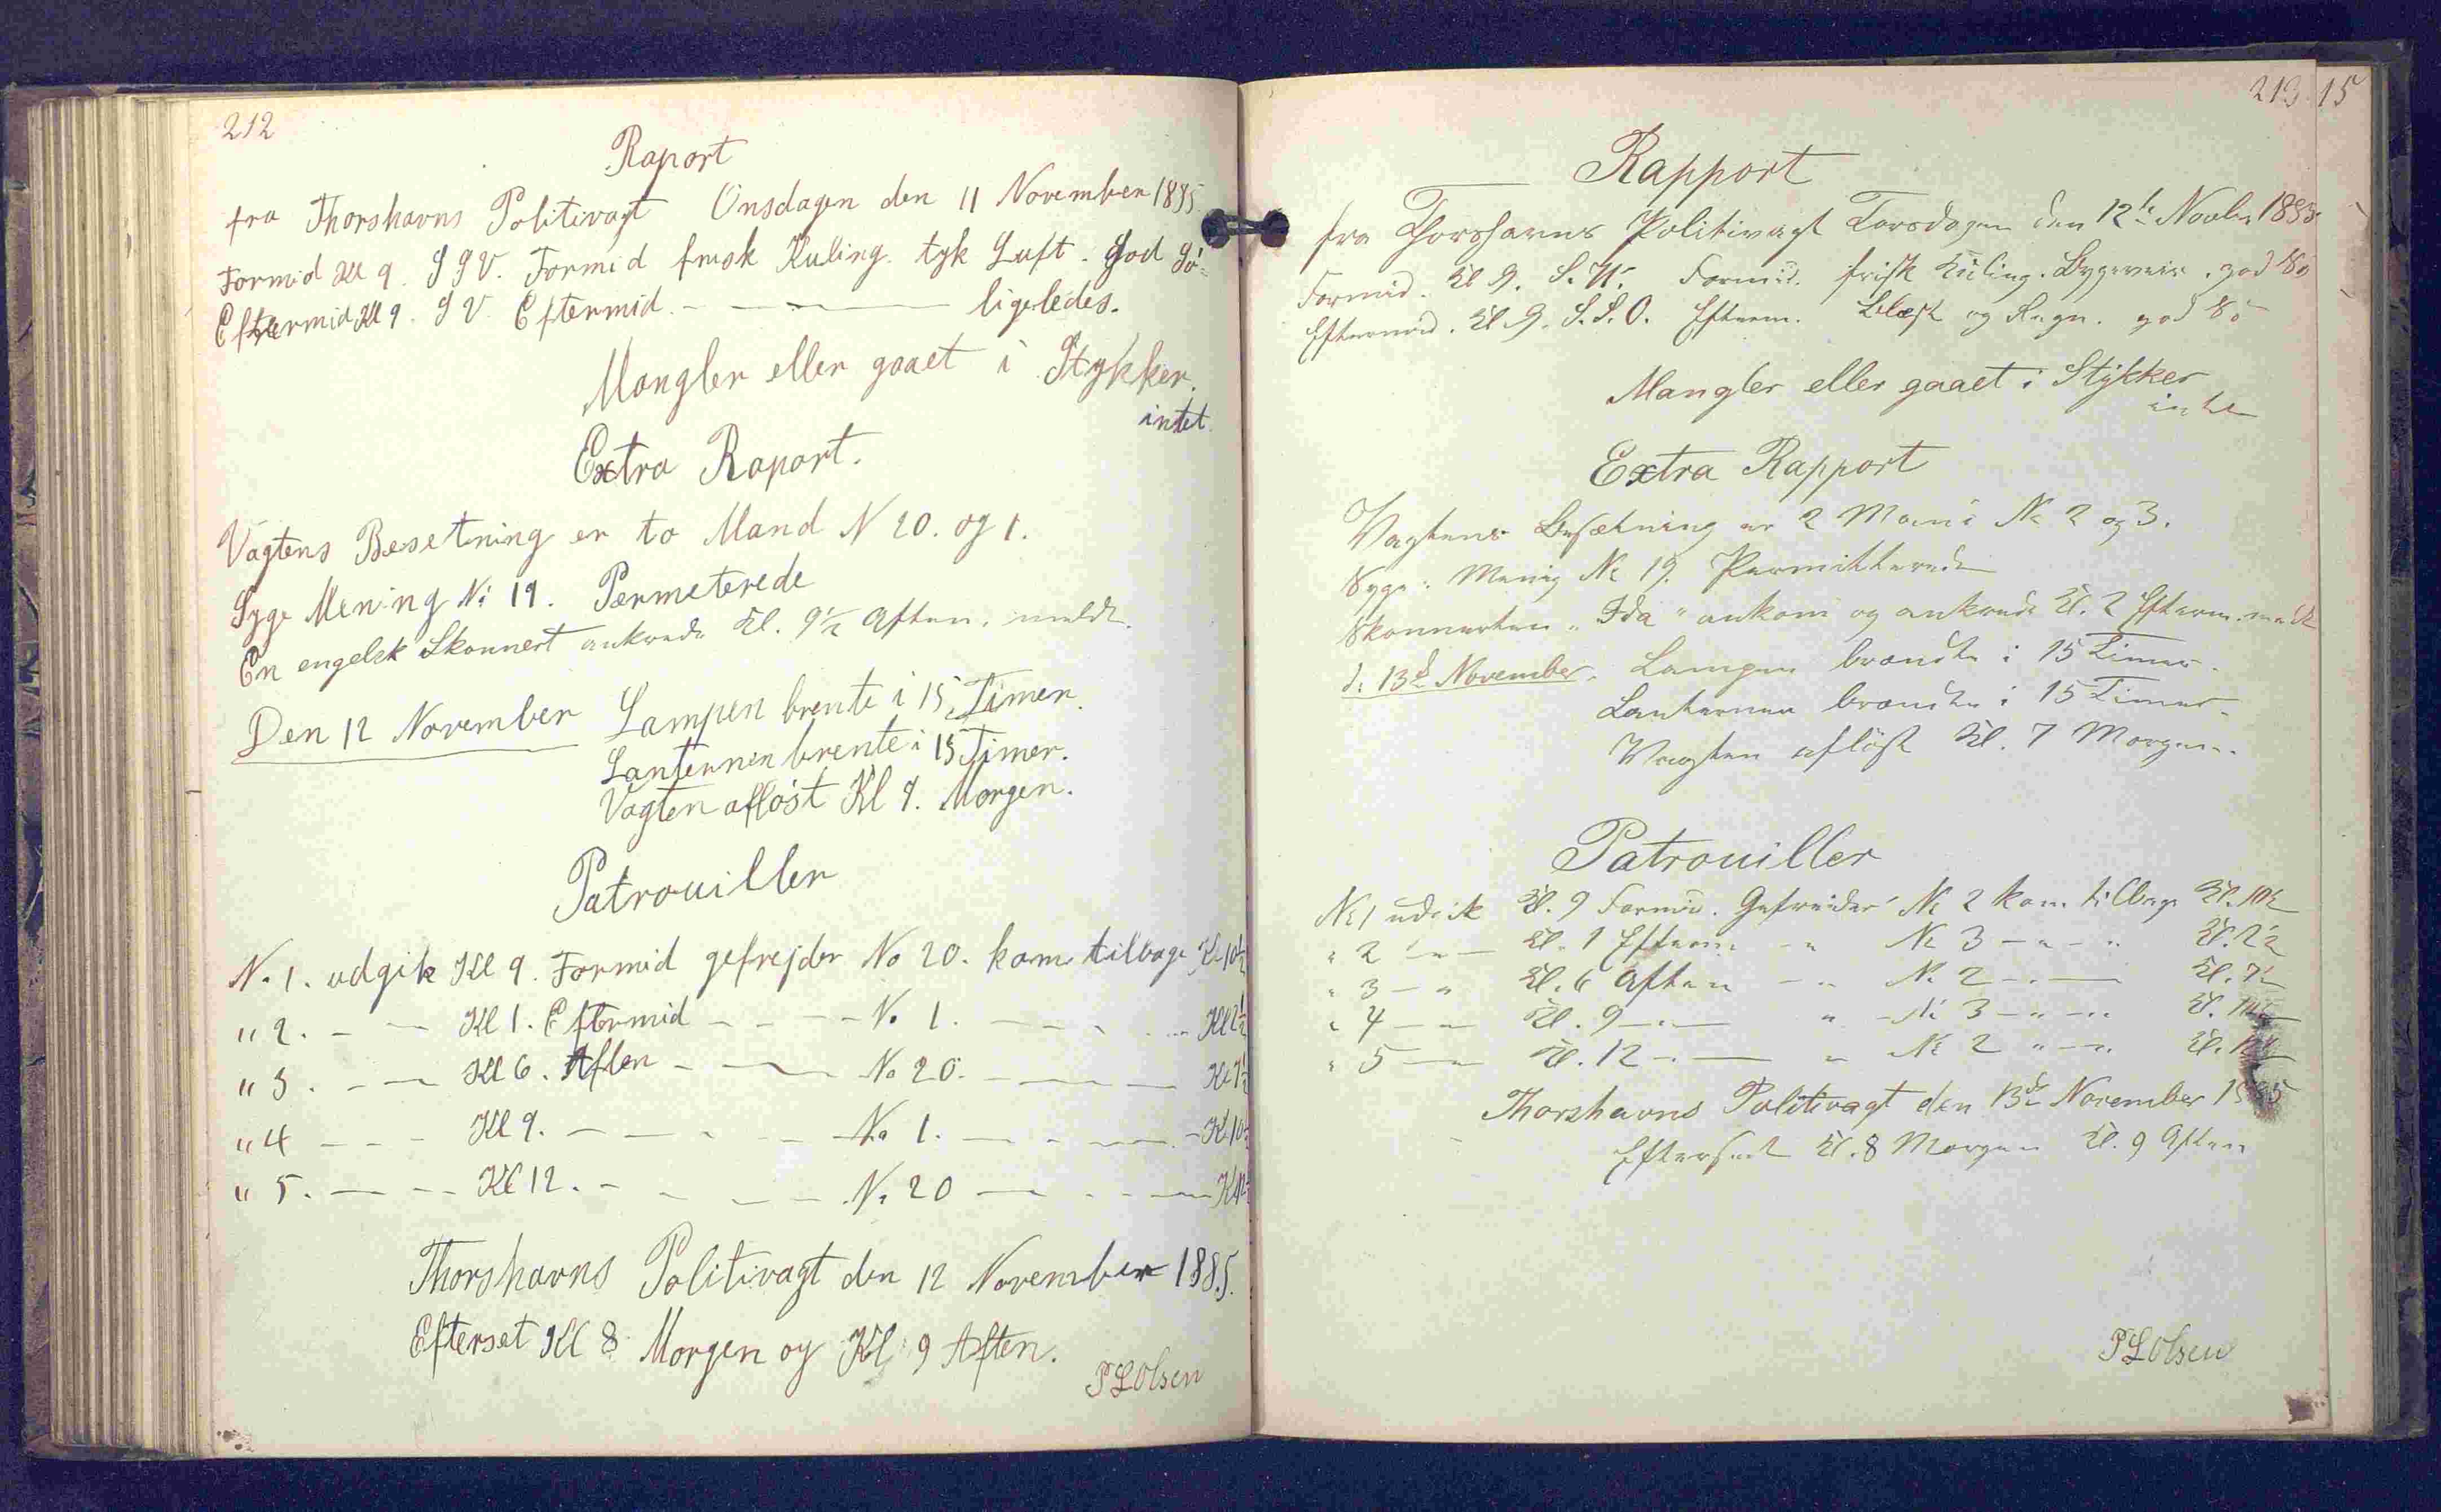 212
Raport
fra Thorshavns Politivagt Onsdagen den 11 November 1885
Formid Kl 9. S S V. Formid frisk Kuling. tyk Luft. God Sö
Eftermid Kl 9. S V. Eftermid. — — — ligeledes.
Mangler eller gaaet i Stykker.
intet.
Extra Raport.
Vagtens Besetning er to Mand N 20. og 1.
Syge Mening No 19. Permeterede
En engelsk Skonnert ankrede Kl. 9½ Aften. meldt.
Den 12 November Lampen brente i 15 Timer.
Lanternen brente i 15 Timer.
Vagten afløst Kl 7. Morgen.
Patrouiller
No 1. udgik Kl 9. Formid gefrejder No 20. kom tilbage Kl 10½
" 2. — — Kl 1. Eftermid — — — No 1. — — — Kl 2½
" 3. — — Kl 6. Aften — — No 20. — — — Kl 7½
" 4 — — — Kl 9. — — — — No 1. — — — Kl 10½
" 5. — — — Kl 12. — — — — No 20 — — — Kl
Thorshavns Politivagt den 12 November 1885.
Efterset Kl 8 Morgen og Kl 9 Aften.
P L Olsen
213 15
Rapport
fra Thorshavns Politivagt Torsdagen den 12te Novbr 1885
Formid. Kl 9. S. V. Formid. frisk Kuling. Bygeveir. god Sö
Eftermid. Kl 9. S. S. O. Efterm. Blæst og Regn. god Sö
Mangler eller gaaet i Stykker
intet
Extra Rapport
Vagtens Besætning er 2 Mand No 2 og 3.
Syge: Menig No 19. Permitterede
Skonnerten "Ida" ankom og ankrede Kl. 2 Efterm. meldt
d: 13de November. Lampen brændte i 15 Timer.
Lanternen brændte i 15 Timer.
Vagten aflöst Kl. 7 Morgen.
Patrouiller
No 1 udgik Kl. 9 Formid. Gefreider No 2 kom tilbage Kl. 10½
" 2 — " — Kl. 1 Efterm — " No 3 — " — " Kl. 2½
" 3 — " Kl. 6 Aften — " No 2 — " — Kl. 7½
" 4 — " — Kl. 9 — " — " No 3 — " — " Kl. 10½
" 5 — " Kl. 12 — " — " No 2 " — " Kl.
Thorshavns Politivagt den 13de November 1885
Efterseet Kl. 8 Morgen Kl. 9 Aften
P L Olsen